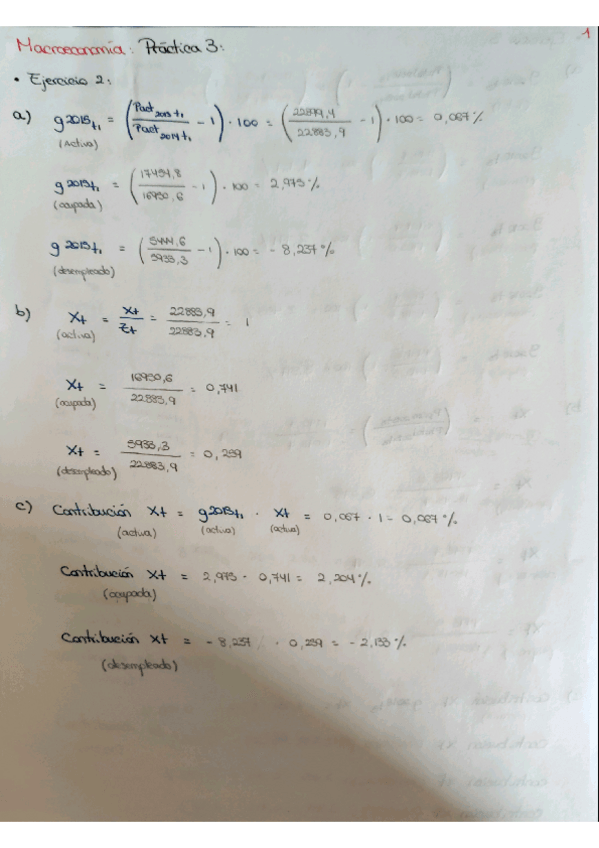 1
Macroeconomía: Práctica 3:
• Ejercicio 2:
a) g2015t₁ = (Pact2015t₁ / Pact2014t₁ − 1) · 100 = (22899,4 / 22883,9 − 1) · 100 = 0,067 %
(Activa)
g2015t₁ = (17454,8 / 16950,6 − 1) · 100 = 2,975 %
(ocupada)
g2015t₁ = (5444,6 / 5933,3 − 1) · 100 = − 8,237 %
(desempleado)
b) Xt = Xt / Zt = 22883,9 / 22883,9 = 1
(activa)
Xt = 16950,6 / 22883,9 = 0,741
(ocupada)
Xt = 5933,3 / 22883,9 = 0,259
(desempleado)
c) Contribución Xt = g2015t₁ · Xt = 0,067 · 1 = 0,067 %
(activa) (activa) (activa)
Contribución Xt = 2,975 · 0,741 = 2,204 %
(ocupada)
Contribución Xt = − 8,237 · 0,259 = − 2,133 %
(desempleado)